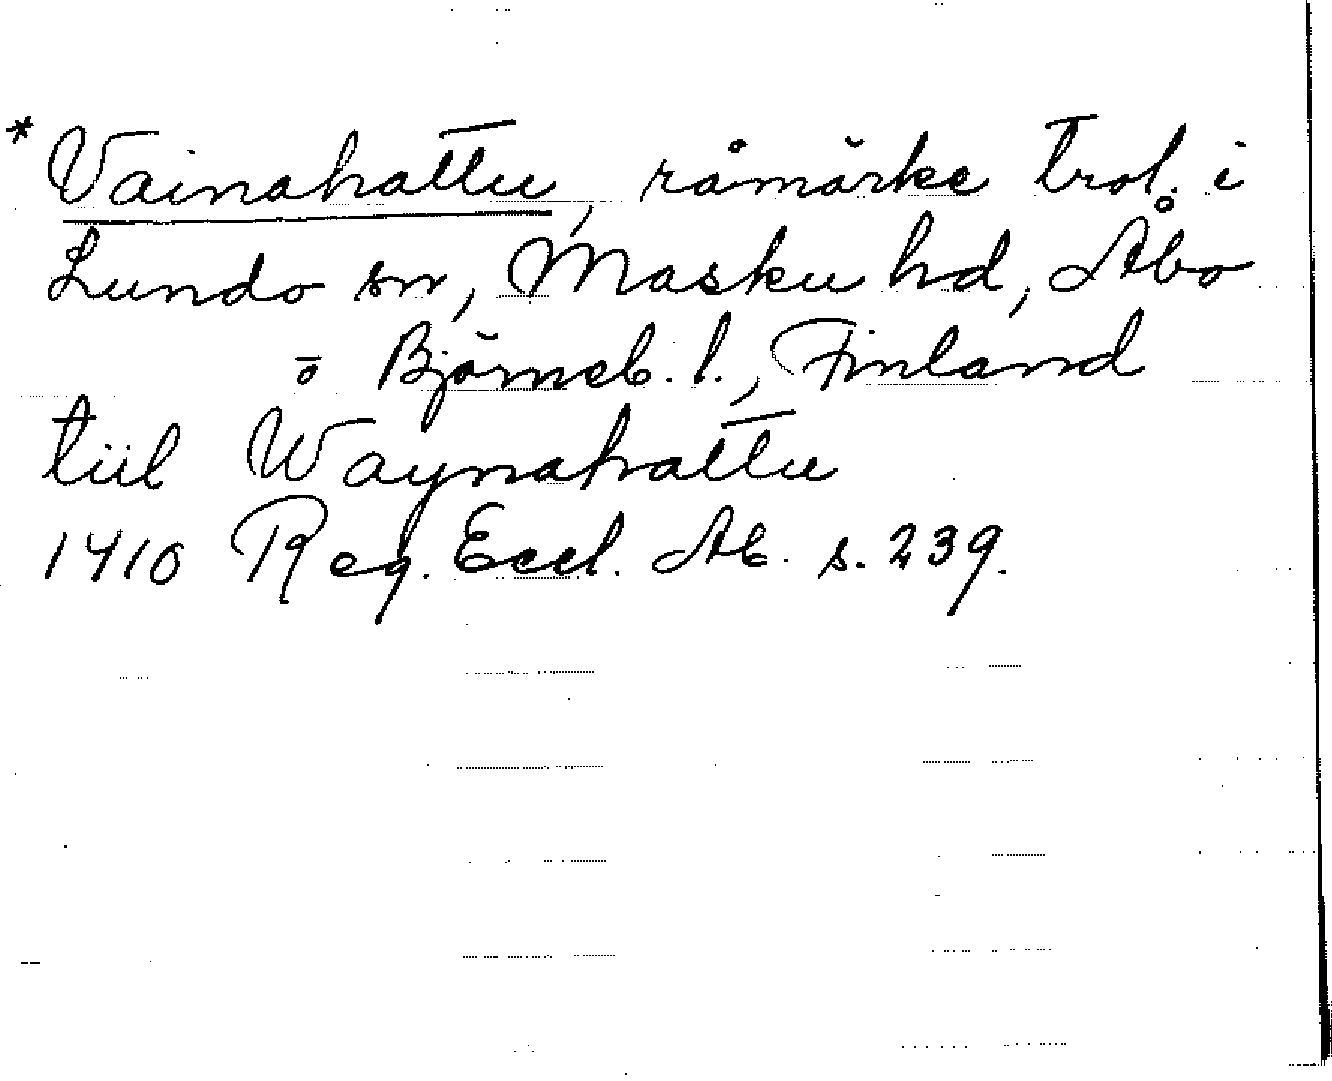 * Vainahattu, råmärke trol. i
Lundo sn, Masku hd, Åbo
o Björneb. l., Finland
tiil Waynahattu
1410 Reg. Eccl. Ab. s. 239.